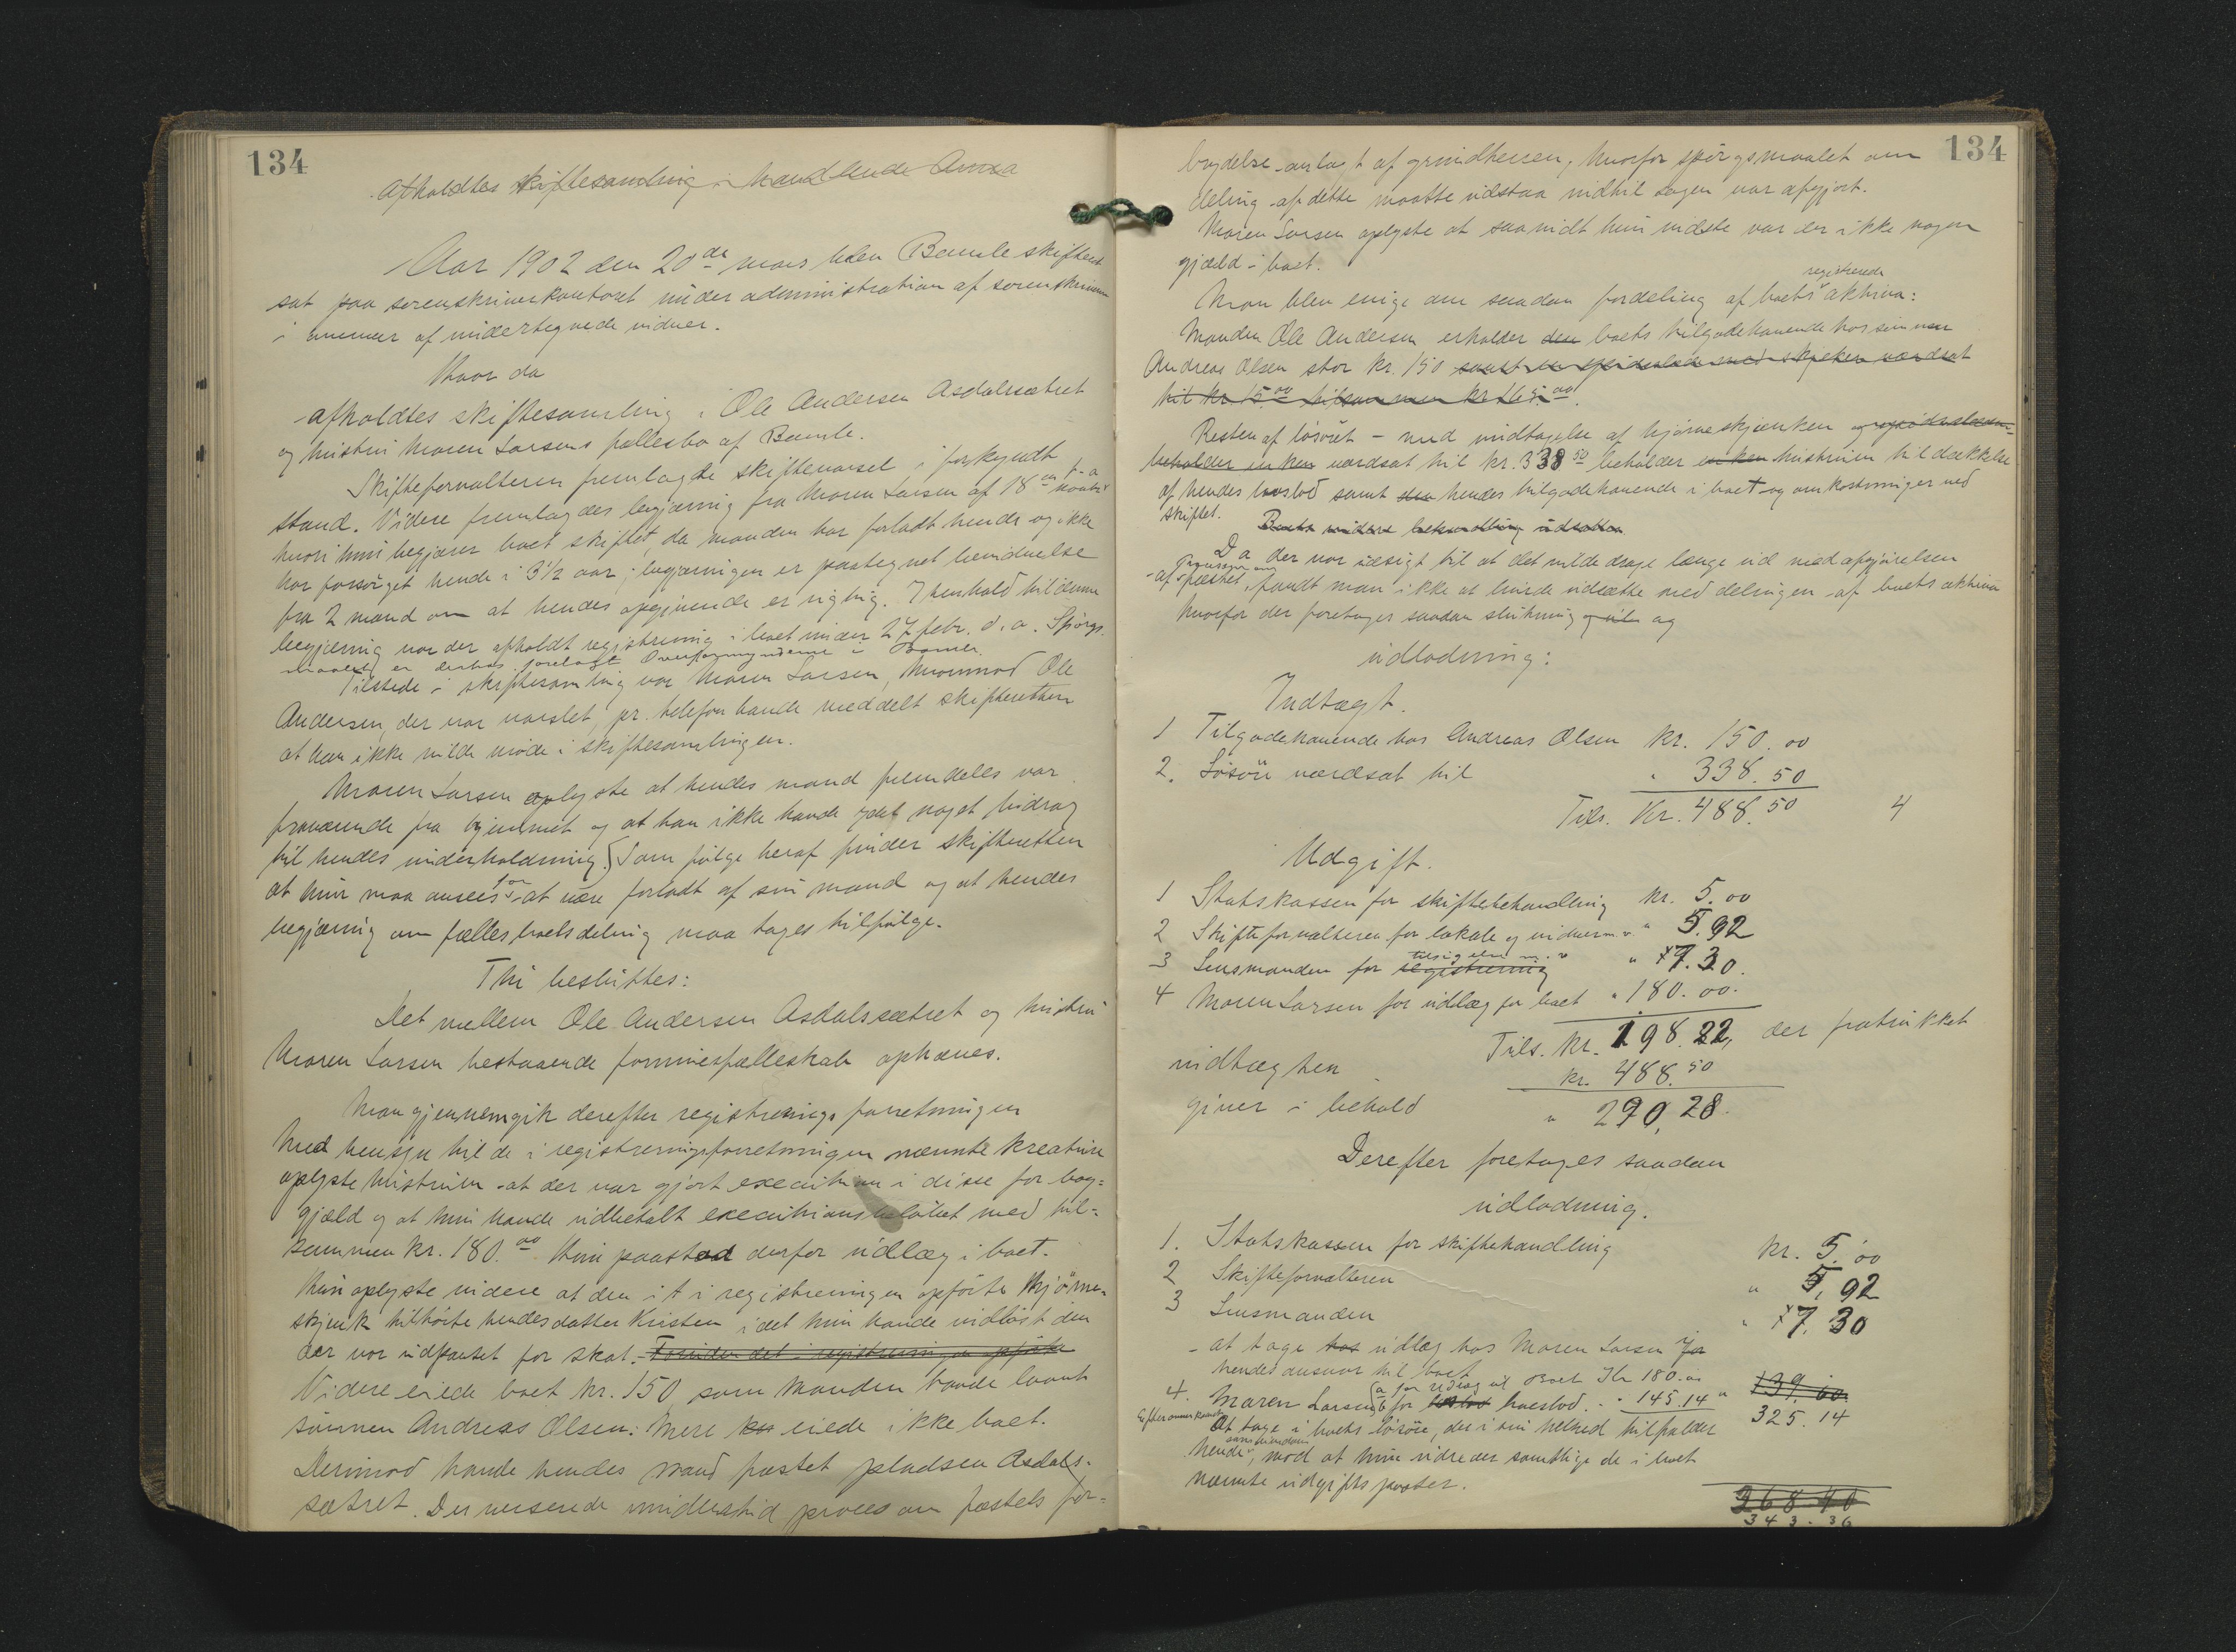 134
Afholdtes skiftesamling i
Aar 1902 den 20de mars blev Bamle skifteret
sat paa sorenskriverkontoret under administration af sorenskriveren
i nærvær af undertegnede vidner.
Hvor da
afholdtes skiftesamling i Ole Andersen Asdalsætret
og hustru Maren Larsens fællesbo af Bamle.
Skifteforvalteren fremlagde skiftevarsel i forkyndt
stand. Videre fremlagdes begjæring fra Maren Larsen af 18de
hvori hun begjærer boet skiftet, da manden har forladt hende og ikke
har forsørget hende i 3 1/2 aar; begjæringen er paategnet bevidnelse
fra 2 mænd om at hendes opgivende er rigtig. I henhold til denne
begjæring var der afholdt registrering i boet under 27 febr. d. a. Spörgs-
maalet er derhos forelagt Overformynderne i Bamle.
Tilstede i skiftesamling var Maren Larsen, hvorimod Ole
Andersen, der var varslet, pr. telefon havde meddelt skifteretten
at han ikke vilde møde i skiftesamlingen.
Maren Larsen oplyste at hendes mand fremdeles var
fraværende fra hjemmet og at han ikke havde ydet noget bidrag
til hendes underholdning. Som følge heraf finder skifteretten
at hun maa ansees for at være forladt af sin mand og at hendes
begjæring om fællesboets deling maa tages tilfølge.
Thi besluttes:
Det mellem Ole Andersen Asdalssætret og hustru
Maren Larsen bestaaende formuesfælleskab ophæves.
Man gjennemgik derefter registreringsforretningen
Med hensyn til de i registreringsforretningen nævnte kreature
oplyste hustruen at der var gjort execution i disse for bog-
gjæld og at hun havde udbetalt executionsbeløbet med til-
sammen kr. 180.00 Hun paastod derfor udlæg i boet.
Hun oplyste videre at den i registreringen opførte Hjørne-
skjænk tilhørte hendes datter Kristen idet hun havde indløst den
der var udpantet for skat. Foruden det i registreringen opførte
Videre eiede boet kr. 150, som Manden havde laant
sønnen Andreas Olsen. Mere eiede ikke boet.
Derimod havde hendes mand fæstet pladsen Asdals-
sætret. Der verserede imidlertid proces om fæstets for-
134
brydelse anlagt af grundherren, hvorfor spörgsmaalet om
deling af dette maatte udstaa indtil sagen var afgjort.
Maren Larsen oplyste at saavidt hun vidste var der ikke nogen
gjæld i boet.
registrerede
Man blev enige om saadan fordeling af boets aktiva:
Manden Ole Andersen erholder den boets tilgodehavende hos sønnen
Andreas Olsen stor kr. 150 samt
til kr 15.00 tilsammen kr 165.00
Resten af løsøret - med undtagelse af hjørneskjænken og
beholder enken værdsat til kr. 338 50 beholder enken hustruen til dækkelse
af hendes boslod samt hendes tilgodehavende i boet og omkostninger ved
skiftet.
Boets videre behandling udsættes
Da der var udsigt til at det vilde drage længe ud med afgjörelsen
af processen om fæstet, fandt man ikke at burde udsætte med delingen af boets aktiva
hvorfor der foretages saadan slutning og
udlodning:
Indtægt.
1 Tilgodehavende hos Andreas Olsen kr. 150.00
2. Løsøre værdsat til " 338.50
Tils. Kr. 488.50 4
Udgift.
1 Statskassen for skiftebehandling kr. 5.00
2 Skifteforvalteren for lokale og vidner m.v. " 5.92
tilsigelse m. v
3 Lensmanden for registrering " 7.30
4 Maren Larsen for udlæg for boet " 180.00
Tils. kr. 198.22, der fratrukket
indtægten kr. 488.50
giver i behold " 290,28
Derefter foretages saadan
udlodning.
1. Statskassen for skiftebehandling kr. 5.00
2 Skifteforvalteren " 5,92
3 Lensmanden " 7.30
at tage udlæg hos Maren Larsen for
hendes ansvar til boet
4. Maren Larsen a for udlæg til Boet Kr 180.00
b for boeslod " 145.14 " 139.00
325.14
At tage i boets løsøre, der i sin helhed tilfalder
hende, mod at hun udreder samtlige de i boet
nævnte udgiftsposter.
268 40
343.36